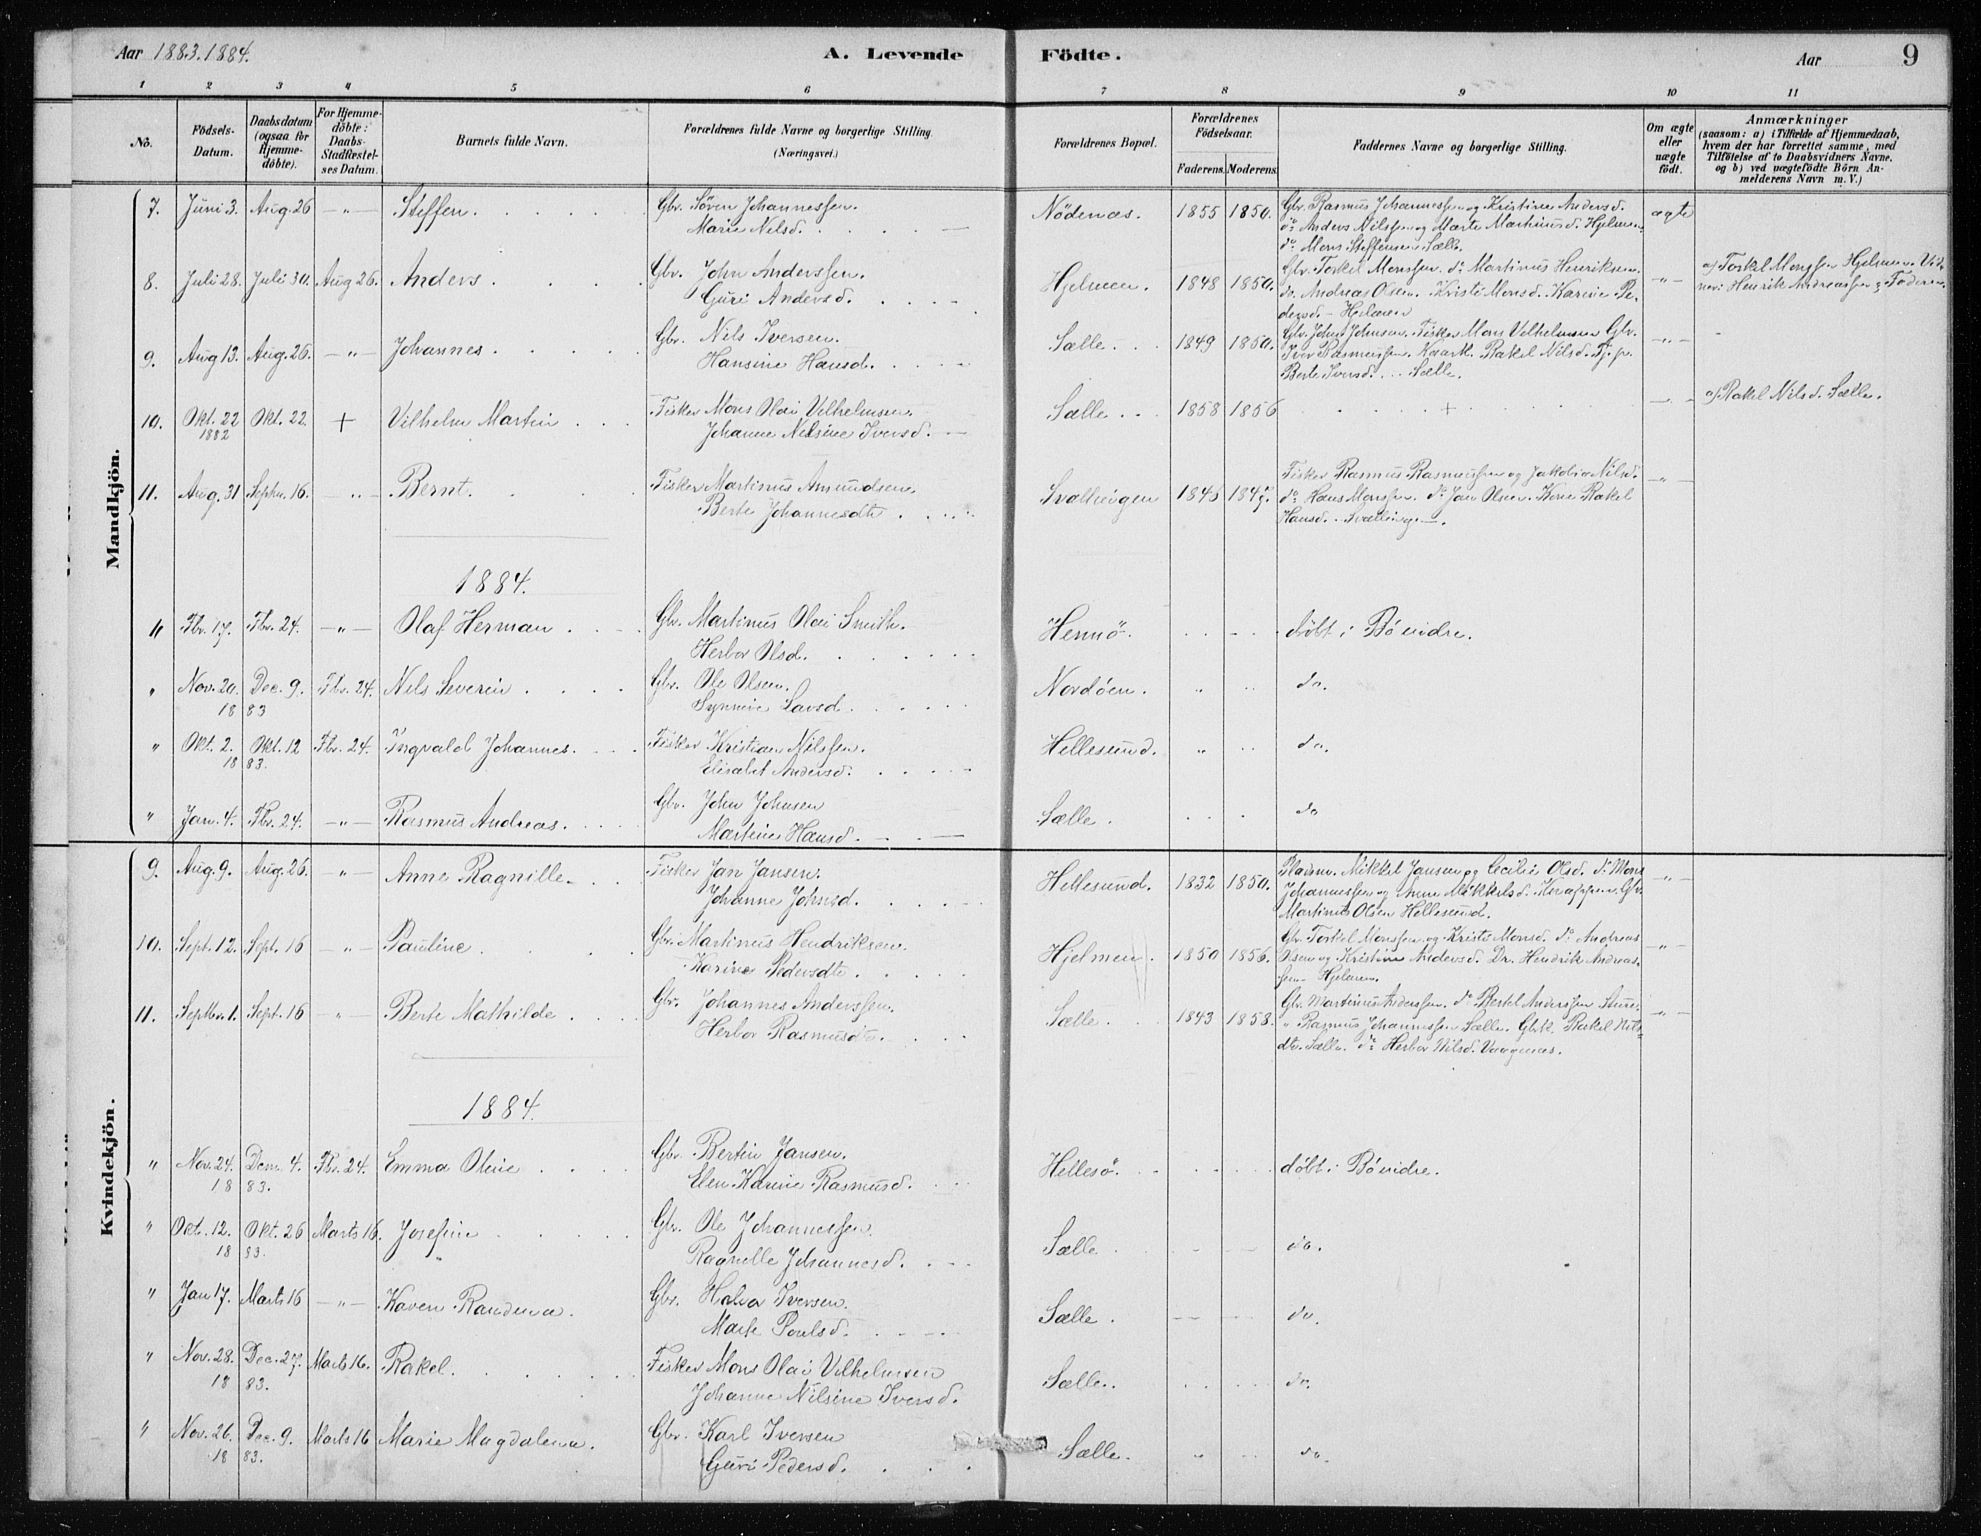 Aar 1883.1884.
A. Levende Födte.
Aar
9
1 2 3 4 5 6 7 8 9 10 11
No.
Födsels-Datum.
Daabsdatum (ogsaa for Hjemme-döbte).
For Hjemme-döbte: Daabs-Stadfæstel-ses Datum.
Barnets fulde Navn.
Forældrenes fulde Navne og borgerlige Stilling. (Næringsvei.)
Forældrenes Bopæl.
Forældrenes Födselsaar.
Faderens. Moderens.
Faddernes Navne og borgerlige Stilling.
Om ægte eller uægte födt.
Anmærkninger
(saasom: a) i Tilfælde af Hjemmedaab, hvem der har forrettet samme, med Tilföielse af to Daabsvidners Navne, og b) ved uægtefödte Börn An-melderens Navn m. V.)
Mandkjön.
7. Juni 3. Aug. 26 -"- Steffen. Gbr. Sören Johannessen. Nödenæs. 1855 1850. Gbr. Rasmus Johannessen og Kristine Andersd. ægte
Marie Nilsd. do Anders Nilssen og Marte Martinusd. Hjelmen.
do Mons Steffensen Sælle.
8. Juli 28. Juli 30. Aug 26. Anders. Gbr. John Anderssen. Hjelmen. 1848 1850. Gbr. Torkel Monssen. do Martinus Henriksen. -"- a) Torkel Monssen Hjelmen. Vid-
Guri Andersd. do. Andreas Olsen. Kristi Monsd. Karine Pe- ner: Henrik Andreassen og Faderen.
dersd. - Hjelmen
9. Aug 13. Aug. 26. -"- Johannes. Gbr. Nils Iversen. Sælle. 1849 1850. Gbr. John Johnsen. Fisker Mons Vilhelmsen Gbr. -"-
Hansine Hansd. Iver Rasmussen. Rakel Nilsd.
Berte Iversd. Sælle.
10. Okt. 22 Okt. 22. + Vilhelm Martin Fisker Mons Olai Vilhelmsen. Sælle. 1858 1856 + -"- a) Rakel Nilsd. Sælle.
1882 Johanne Nilsine Iversd.
11. Aug. 31 Septbr. 16. -"- Bernt. Fisker Martinus Amundsen. 1845 1847. Fisker Rasmus Rasmussen og Jakobia Nilsd. -"-
Berte Johannesdtr. do Hans Monssen. do Jan Olsen. Rakel
Hansd.
1884.
" Fbr. 17. Fbr. 24. -"- Olaf Herman Gbr. Martinus Olai Smith. Hernö. döbt i Bövidre.
Herbor Olsd.
" Nov. 20. Dec. 9. Fbr. 24. Nils Severin Gbr. Ole Olsen. Nordöen. " do.
1883 Synneve Larsd.
" Okt. 2. Okt. 12 Fbr. 24. Ingvald Johannes. Fisker Kristian Nilssen. Hellesund. " do.
1883. Elisabet Andersd.
" Jan. 4. Fbr. 24. -"- Rasmus Andreas. Gbr. John Johnsen Sælle. do
Martine Hansd.
Kvindekjön.
9. Aug. 9. Aug. 26. -"- Anne Ragnille. Fisker Jan Jansen. Hellesund. 1832 1850. Pladsm. Mikkel Jansen og Cecilie Olsd. do Mons -"-
Johanne Johnsd. Johannessen og Anne Mikkelsd. Gbr.
Martinus Olsen Hellesund.
10. Sept. 12. Sept. 16 -"- Pauline. Gbr. Martinus Hendriksen. Hjelmen. 1850 1856. Gbr. Torkel Monssen og Kristi Monsd. do Andreas -"-
Karine Pedersdtr. Olsen og Kristine Andersd. Dr. Hendrik Andreas-
sen Hjelmen.
11. Septbr. 1. Sept. 16 -"- Berte Mathilde Gbr. Johannes Anderssen. Sælle. 1843 1858. Gbr. Martinus Anderssen. do Bertel Anderssen Sture. -"-
Herbor Rasmusdtr. " Rasmus Johannessen Sælle. Gbk. Rakel Nils-
dtr. Sælle. do Herbor Nilsd. Vaagenæs.
1884.
" Nov. 24. Decm. 4. Fbr. 24. Emma Oline Gbr. Bertin Jansen. Hellesö. döbt i Bövidre.
1883. Elen Karine Rasmusd.
" Okt. 12. Okt. 26 Marts 16. Josefine Gbr. Ole Johannessen Sælle do.
1883. Ragnille Johannesd.
" Jan 17. Marts 16 -"- Karen Randina. Gbr. Halvor Iversen. Sælle. do.
Marte Poulsd.
" Nov. 28. Dec. 27. Marts 16. Rakel. Fisker Mons Olai Vilhelmsen Sælle. do.
1883. Johanne Nilsine Iversd.
" Nov. 26. Dec. 9. Marts 16 Marie Magdalena. Gbr. Karl Iversen Sælle. " do.
1883. Guri Pedersd.